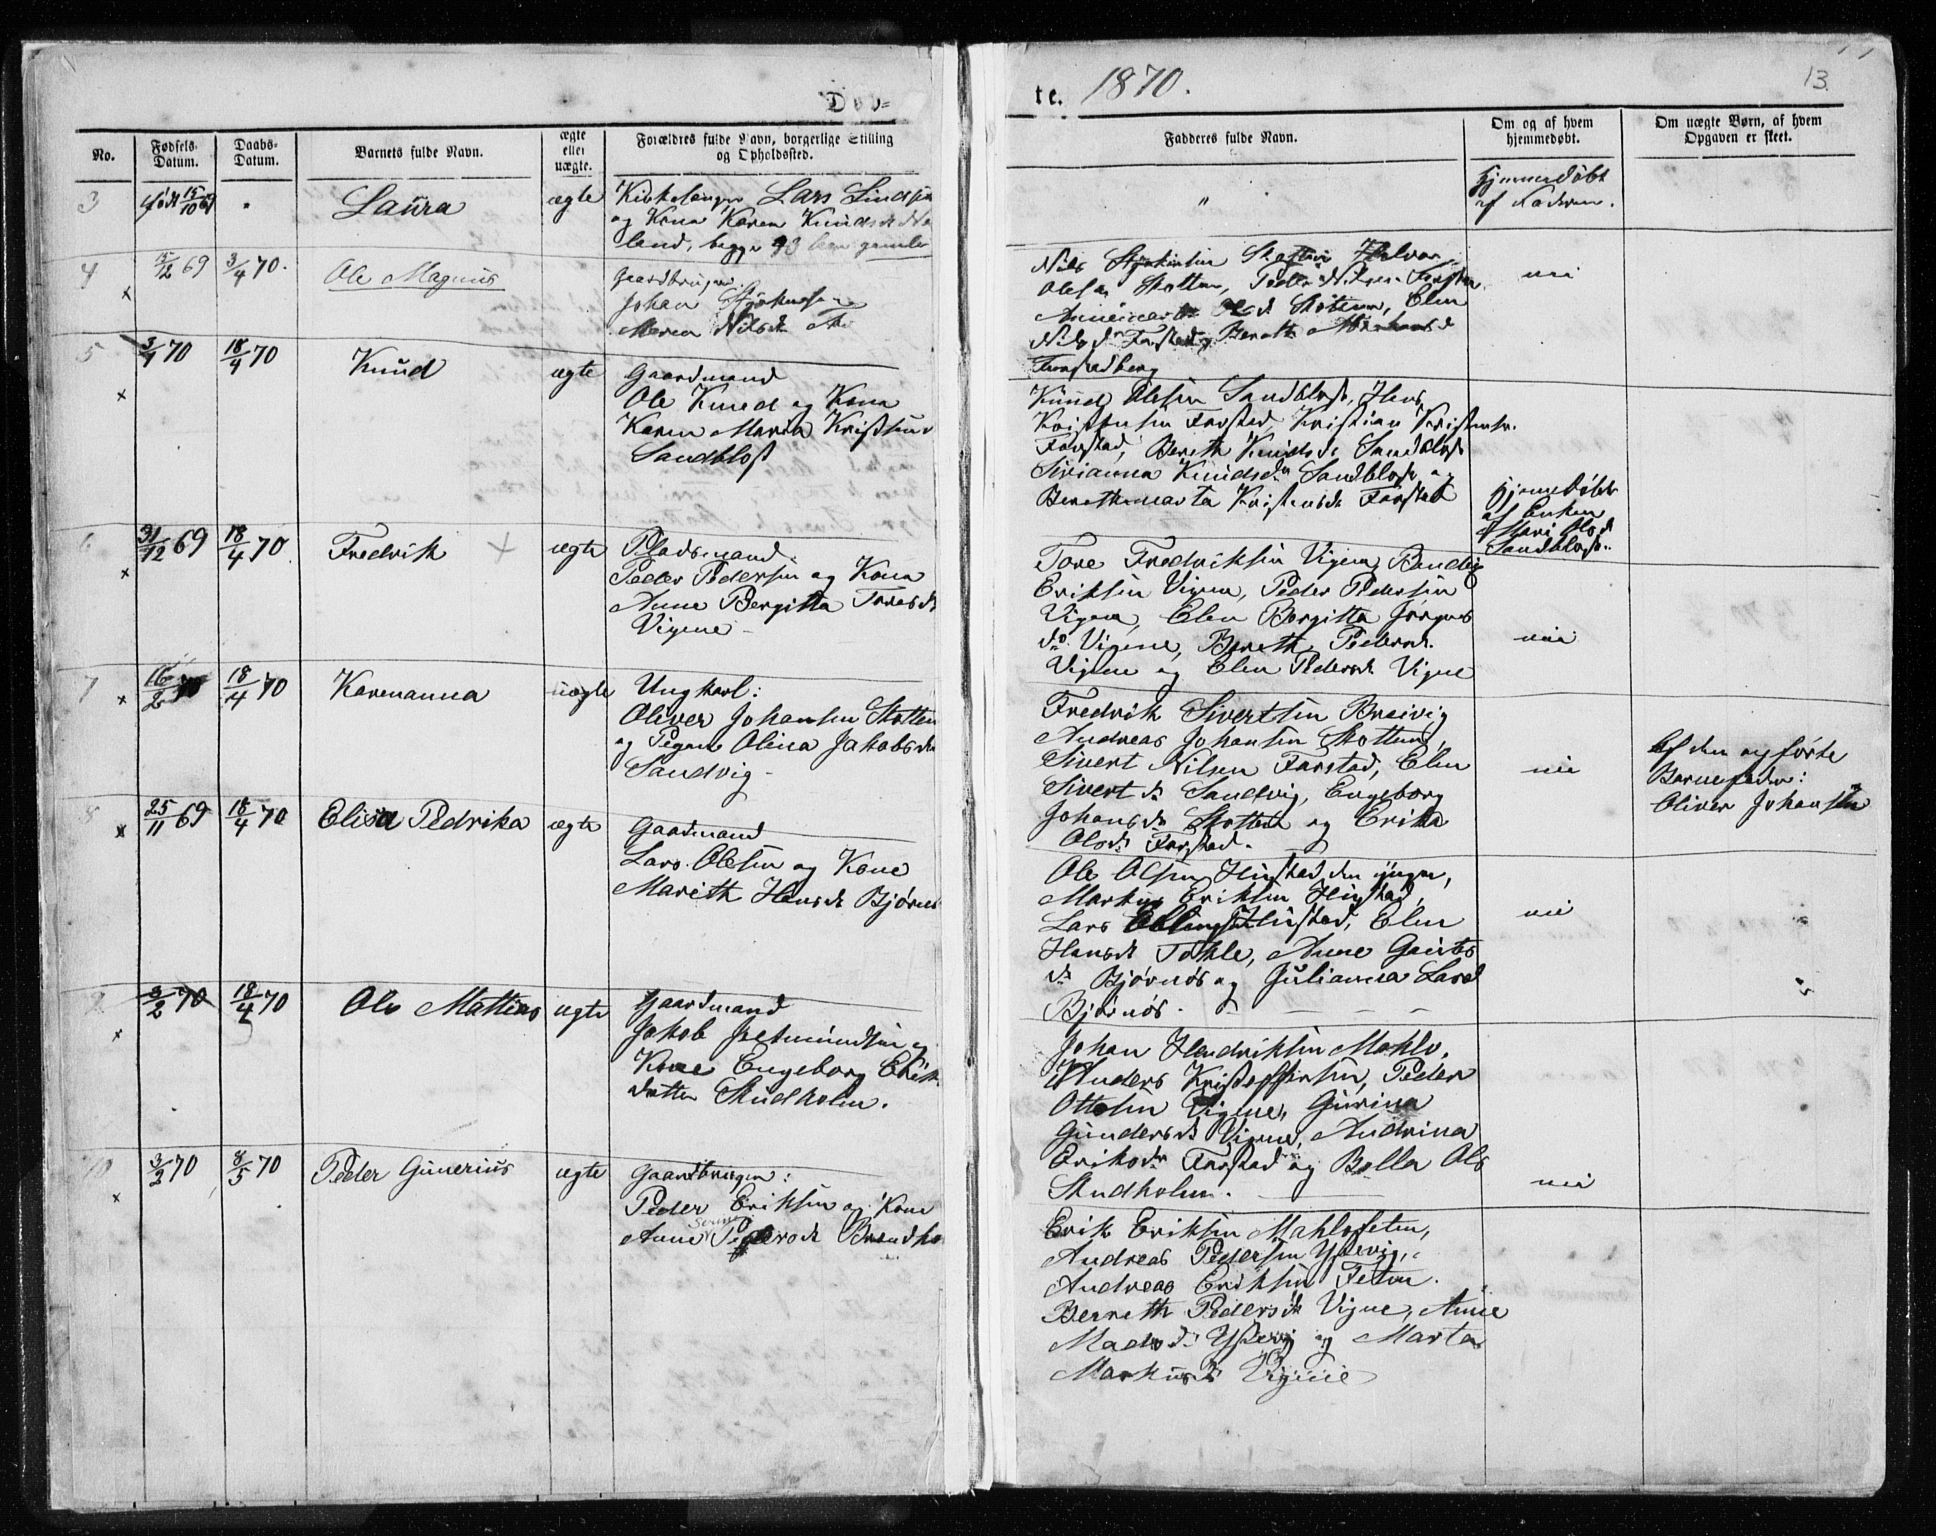 Døb=
te. 1870.
13.
No.
Fødsels-
Datum.
Daabs-
Datum.
Barnets fulde Navn.
ægte
eller
uægte.
Forældres fulde Navn, borgerlige Stilling
og Opholdssted.
Fadderes fulde Navn.
Om og af hvem
hjemmedøbt.
Om uægte Børn, af hvem
Opgaven er skeet.
3
født 15/10 69
"
Laura
ægte
Kirkesanger Lars
og Kona Karen Knudsdt
land, begge 43 gamle
"
hjemmedøbt
af Faderen.
4
x
15/12 69
3/4 70.
Ole Magnus
Gaardbruger
Johan
Maren Nilsdt
Nils
Olesen Skotten, Peder Nilsen Farstad
Olsdt Skotten, Elen
Nilsdt Farstad, Bereth
Farstadberg
nei
5
x
3/4 70
18/4 70
Knud
ægte
Gaardmand
Ole Knud og Kona
Karen Maria
Sandblost
Knud Olesen Sandblost, Hans
Kristensen Farstad, Kristian Kristensen
Farstad, Bereth Knudsdt Sandblost
Sivianna Knudsdt Sandblost og
Berethmarta Kristensdt Farstad
hjemmedøbt
af Enken
Mari Olsdt
Sandblost.
6
x
31/12 69
18/4 70
Fredrik
x
ægte
Pladsmand:
Peder Pedersen og Kona
Anne Bergitta Toresdt
Vigene
Tore Fredriksen Vigene, Bendig
Eriksen Vigene, Peder Pedersen
Vigene, Elen Bergitta Jørgens
dt Vigene, Bereth Pedersdt
Vigene og Elen Pedersdt Vigene
nei
7
x
16/2 70
18/4 70
Karenanna
uægte
Ungkarl:
Oliver Johansen Skotten
og Pigen Olina Jakobsdt
Sandvig
Fredrik Sivertsen Breivig
Andreas Johansen Skotten,
Sivert Nilsen Farstad, Elen
Sivertdt Sandvig, Engeborg
Johansdt Skotten og Erika
Olsdt Farstad.
nei
Af den opførte
Barnefader:
Oliver Johansen
8
x
25/11 69
18/4 70
Elisa Pedrika
ægte
Gaardmand
Lars Olesen og Kone
Mareth Hansdt Bjørnøs
Ole Olsen Hustad den yngre,
Markus Eriksen Hustad,
Lars Ellingsen Hustad, Elen
Hansdt Tokle, Anne
dt Bjørnøs og Julianna Larsd
Bjørnøs.
nei
9
x
3/2 70
18/4 70
Ole Mattias
ægte
Gaardmand
Jakob og
Kone Engeborg Eriks
datter Skudholm.
Johan Hendriksen Mahle,
Anders Kristoffersen, Peder
Ottosen Vigene, Gurina
Gundersdt Vigene, Andrina
Eriksdr Farstad og Bella Ols
Skudholm.
nei
10
x
3/2 70
8/5 70
Peder Gunerius
ægte
Gaardbruger:
Peder Eriksen og Kone
Anne Pedersdt
Erik Eriksen Mahlefeten,
Andreas Pedersen Ystevig,
Andreas Eriksen Feten.
Berreth Pedersdt Vigene, Anne
Madsdt Ystevig og Marta
Markusdt Vigene